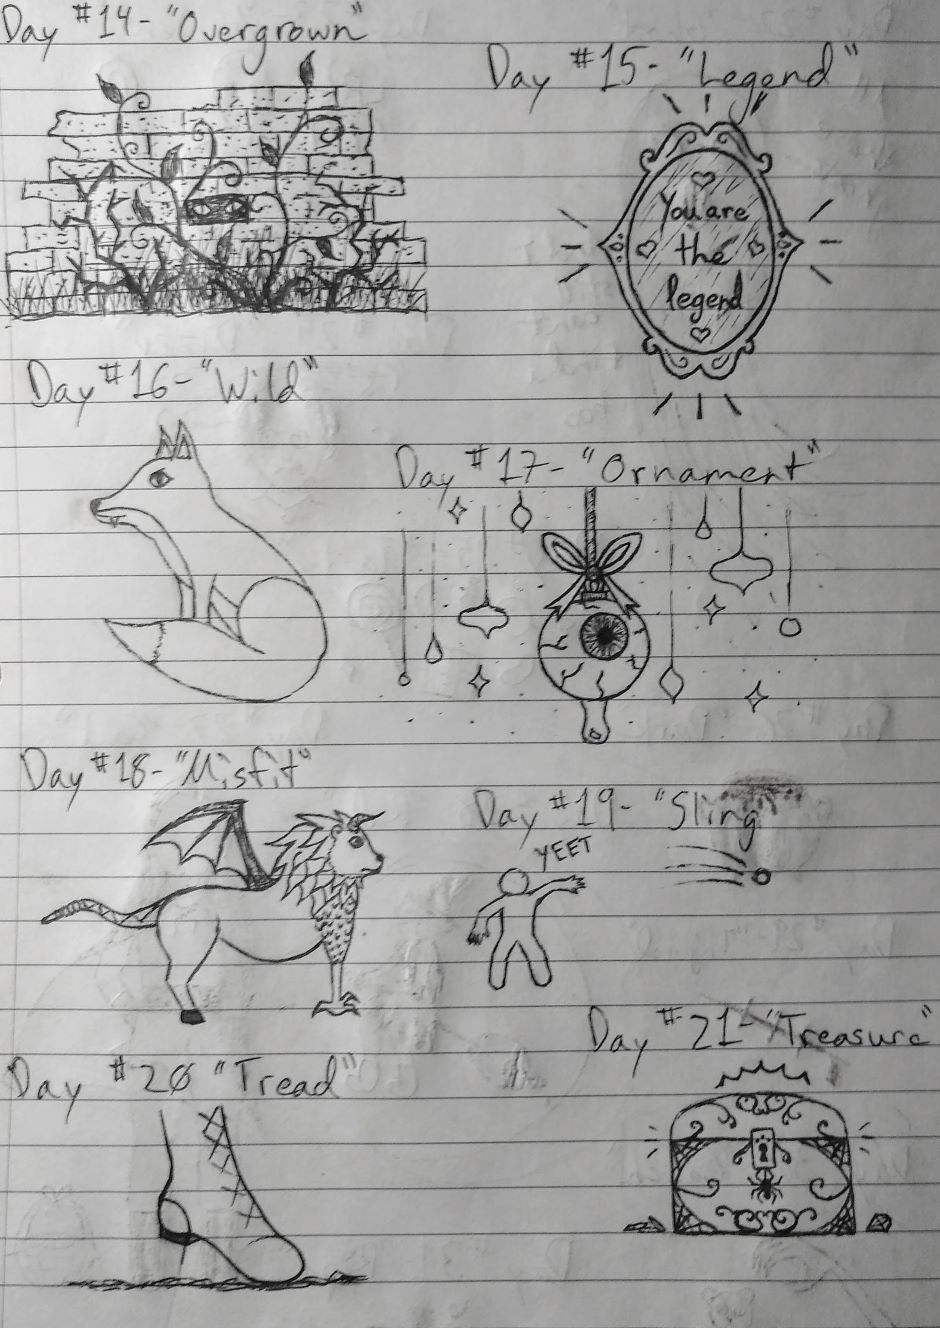 Day #14- "Overgrown"
Day #15- "Legend"
You are
the
legend
Day #16- "Wild"
Day #17- "Ornament"
Day #18- "Misfit"
Day #19- "Sling"
YEET
Day #20 "Tread"
Day #21- "Treasure"